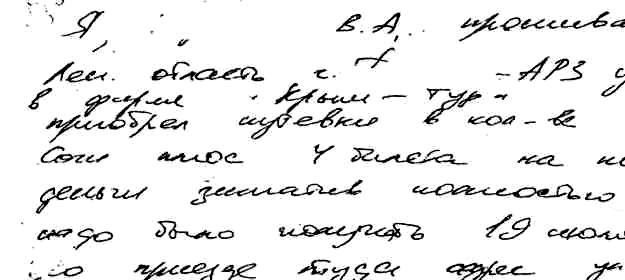 Я, В.А., прожива
Лен. область г. - АРЗ у
в фирме "Крым - Тур"
приобрел путевки в кол-ве
Сочи плюс 4 билета на
деньги заплатив полностью
надо было получить 19 июл
по приезде туда адрес